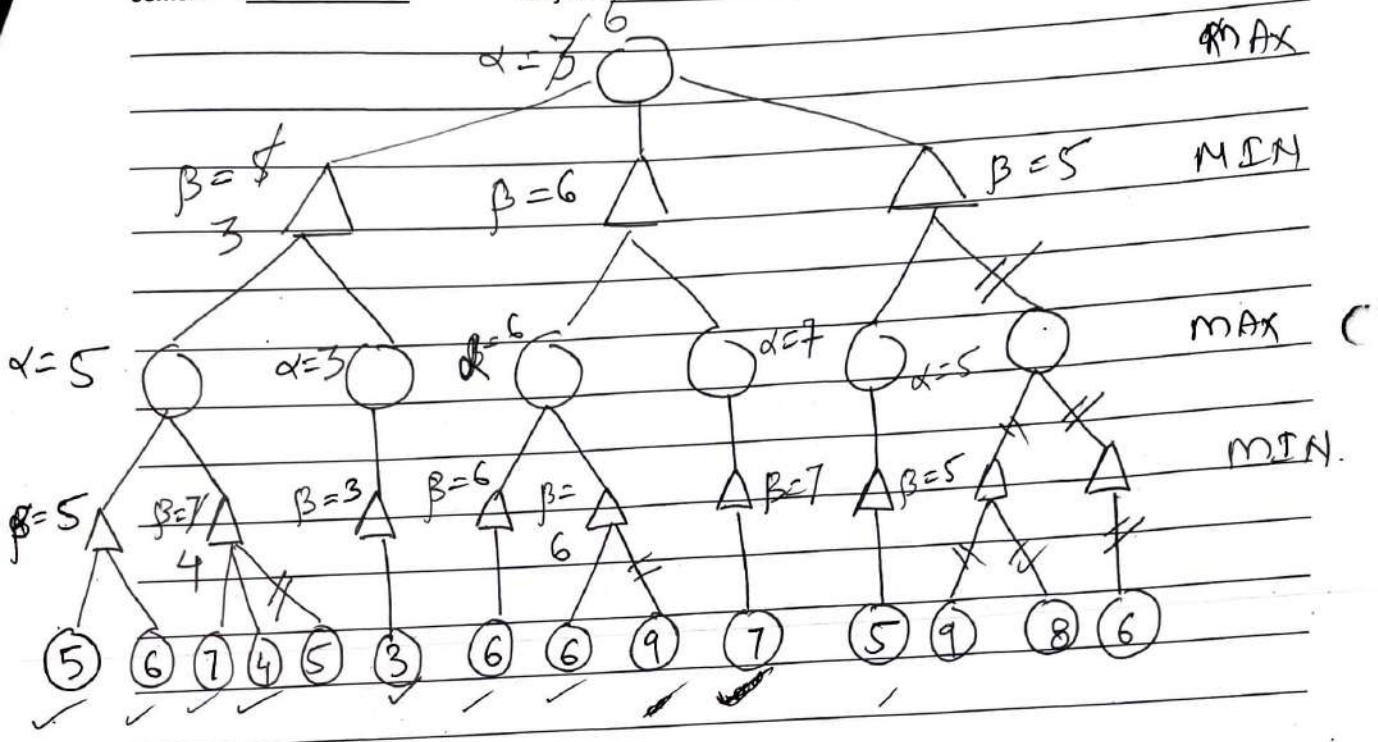 6
α = 3 MAX
β = 5 β = 6 β = 5 MIN
3
6
α = 5 α = 3 α = α = 7 α = 5 MAX (
β = 5 β = 7 β = 3 β = 6 β = β = 7 β = 5 MIN.
4 6
5 6 7 4 5 3 6 6 9 7 5 9 8 6